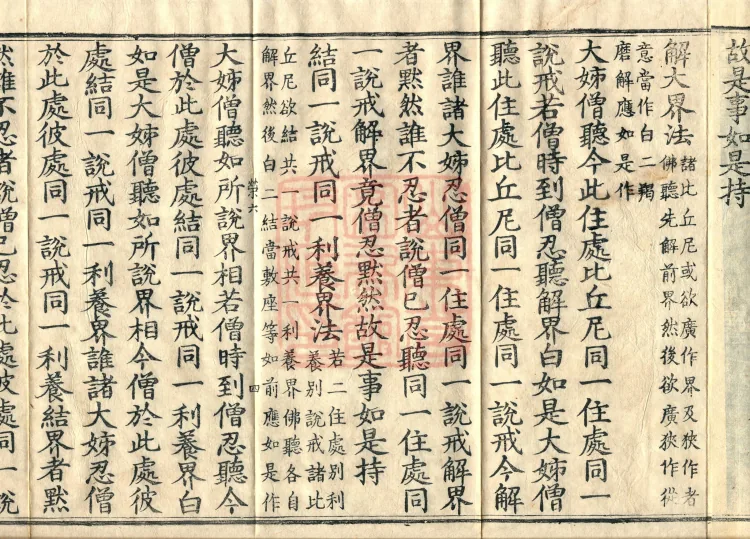 故是事如是持
解大界法諸比丘尼或欲廣作界及狹作者
佛聽先解前界然後欲廣狹作從
意當作白二羯
磨解應如是作
大姊僧聽今此住處比丘尼同一住處同一
說戒若僧時到僧忍聽解界白如是大姊僧
聽此住處比丘尼同一住處同一說戒今解
界誰諸大姊忍僧同一住處同一說戒解界
者默然誰不忍者說僧已忍聽同一住處同
一說戒解界竟僧忍默然故是事如是持
結同一說戒同一利養界法若二住處別利
養別說戒諸比
丘尼欲結共一說戒共一利養界佛聽各自
解界然後白二結當敷座等如前應如是作
榮六
四
大姊僧聽如所說界相若僧時到僧忍聽今
僧於此處彼處結同一說戒同一利養界白
如是大姊僧聽如所說界相今僧於此處彼
處結同一說戒同一利養界誰諸大姊忍僧
於此處彼處同一說戒同一利養結界者默
然誰不忍者說僧已忍於此處彼處同一說